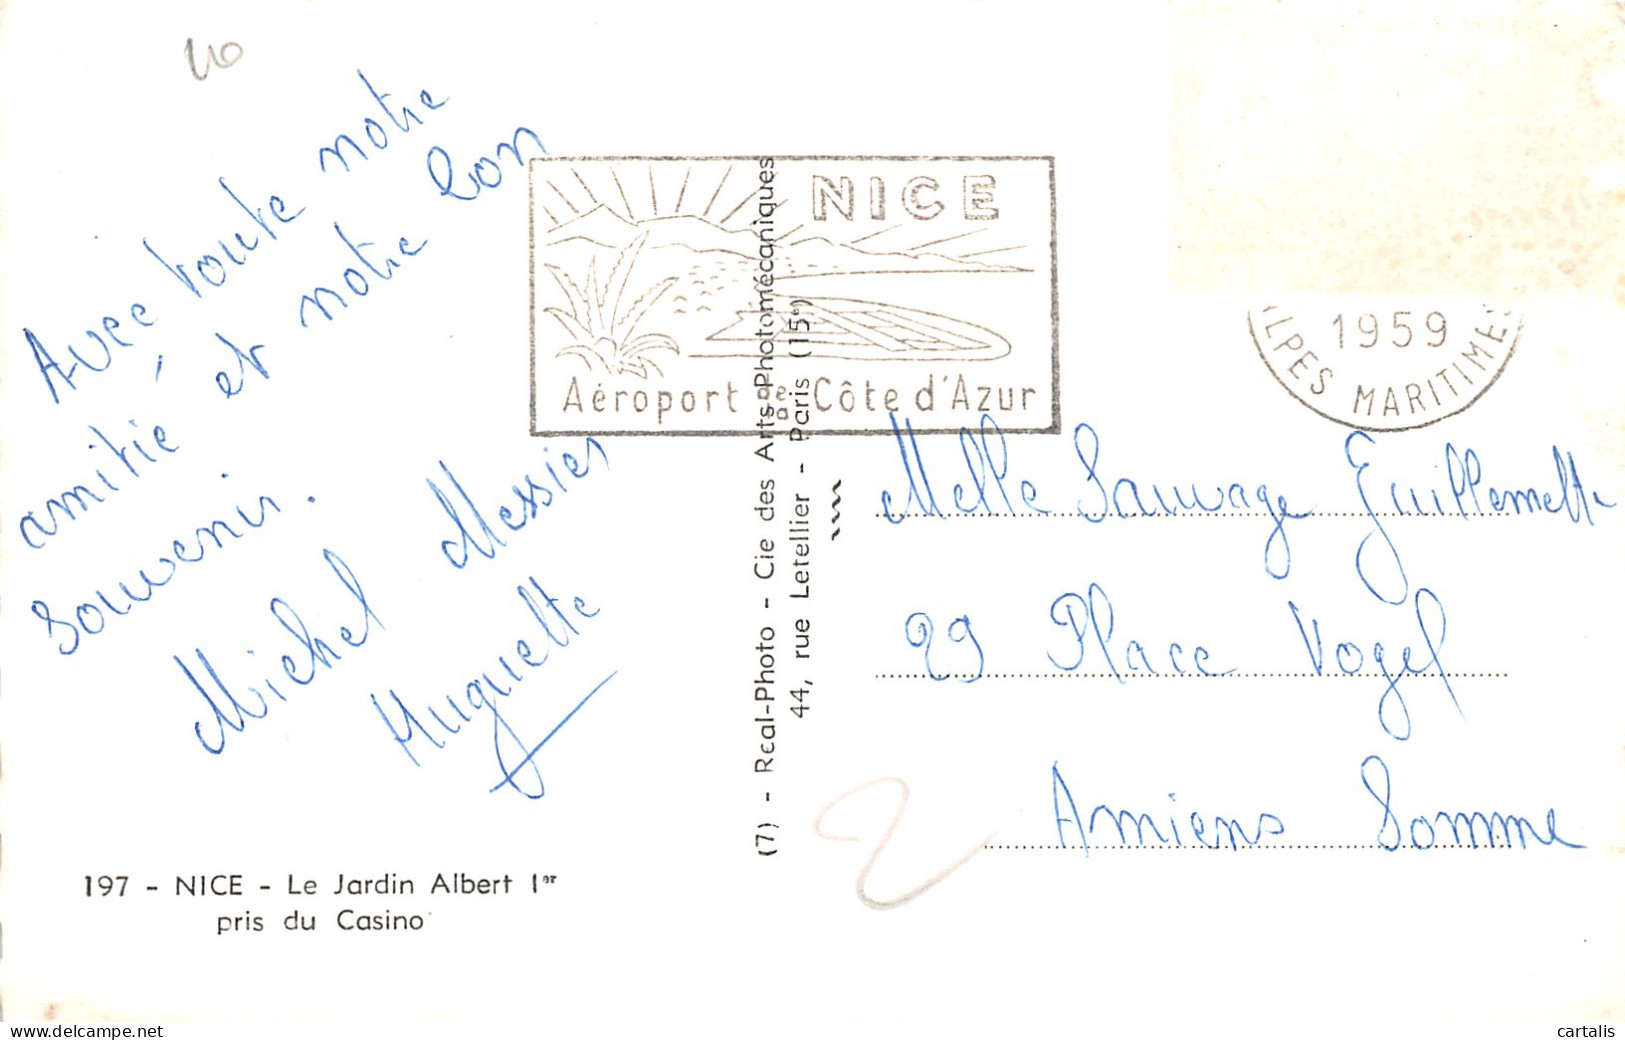 40
Avec toute notre
amitié et notre bon
souvenir.
Michel Messier
Huguette
197 - NICE - Le Jardin Albert Ier
pris du Casino
NICE
Aéroport de Côte d'Azur
(7) - Real-Photo - Cie des Arts Photomécaniques
44, rue Letellier - Paris (15e)
1959
ALPES MARITIMES
Melle Sauvage Guillemette
29 Place Vogel
Amiens Somme
2
www.delcampe.net
cartalis